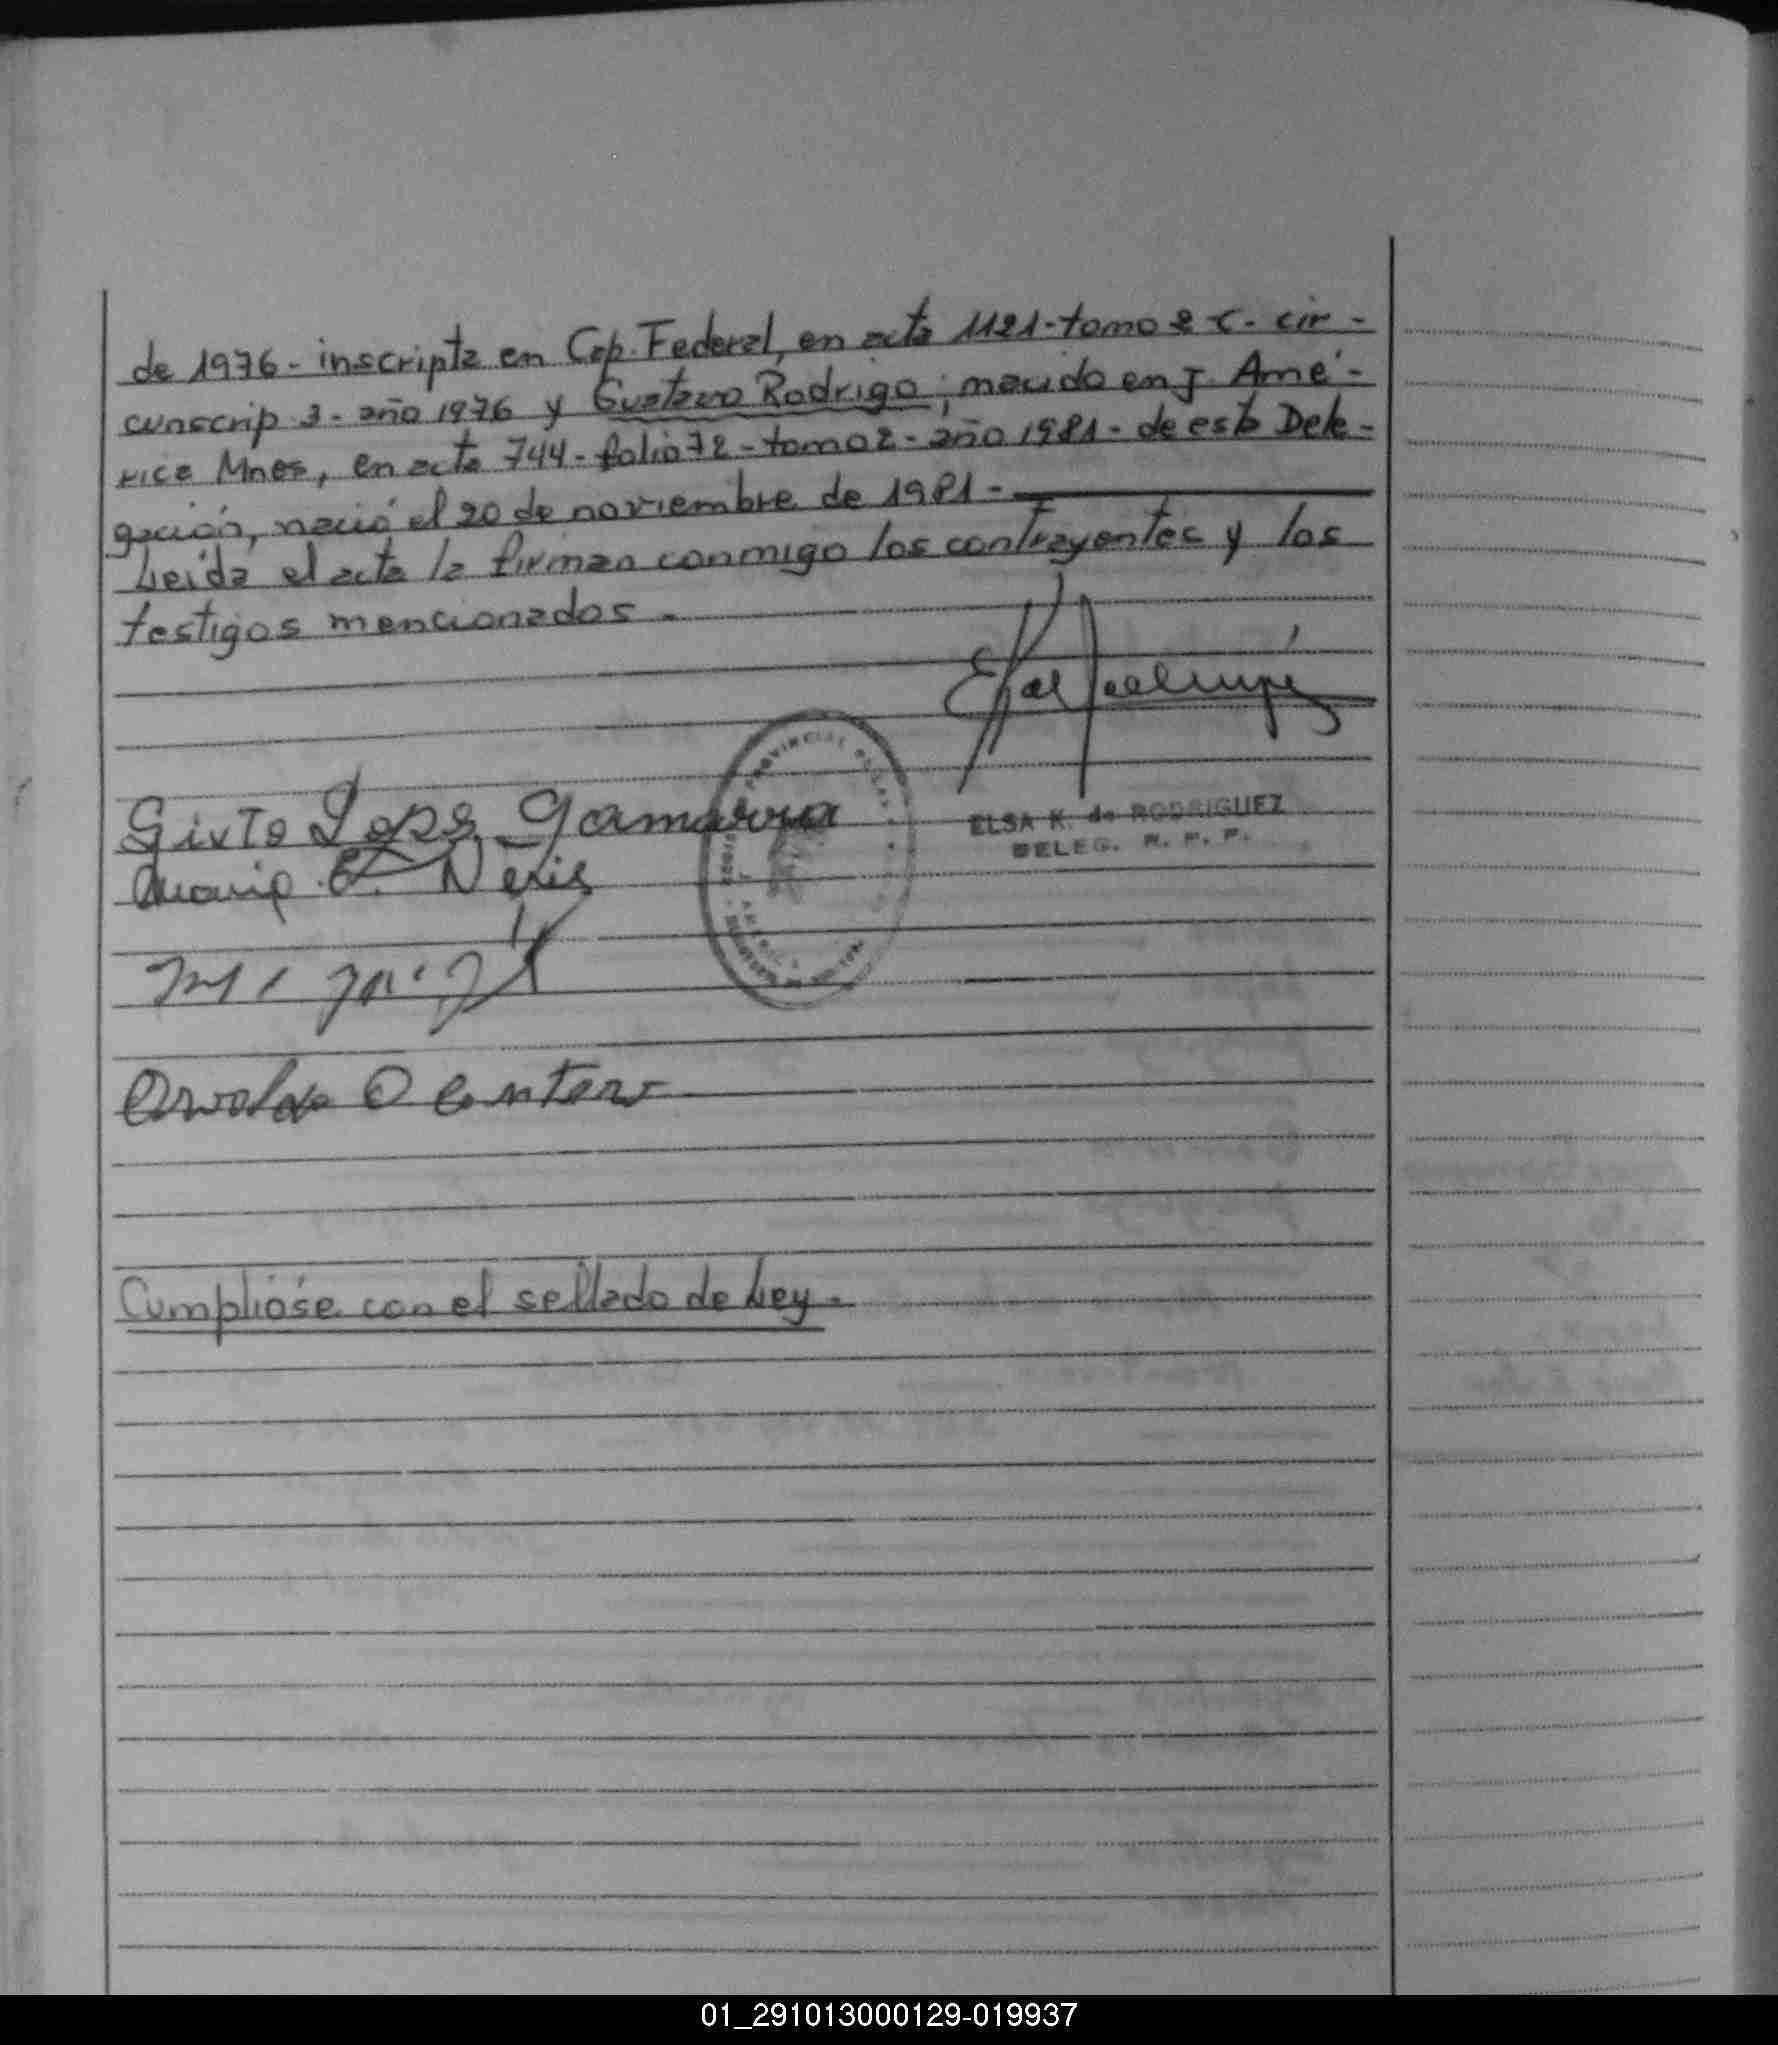 de 1976- inscripta en Cap. Federal, en acta 1121-tomo 2 C- cir-
cunscrip 3- año 1976 y Gustavo Rodrigo; nacido en J. Amé-
rica Mnes, en acta 744- folio 72- tomo 2- año 1981- de esta Dele-
gación, nació el 20 de noviembre de 1981-
Leida el acta la firman conmigo los contrayentes y los
testigos mencionados-
ELSA K. de RODRIGUEZ
DELEG. R. P. P.
PROVINCIAL
Sixto Lopz Gamarra
Maria E. Neris
Osvaldo O Centeno
Cumplióse con el sellado de Ley-
01_291013000129-019937